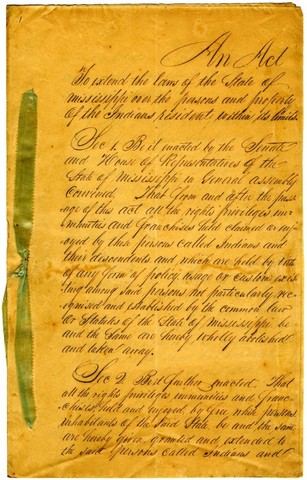 An Act
To extend the laws of the State of
Mississippi over the persons and property
of the Indians resident within its limits
Sec 1. Be it enacted by the Senate
and House of Representatives of the
State of Mississippi in General assembly
Convened, That from and after the pass
age of this act all the rights privileges im
munities and franchises held claimed or en
joyed by those persons called Indians and
their descendants and which are held by virtue
of any form of policy, usage or custom exis
ting among said persons not particularly rec
ognised and established by the common law
or Statutes of the State of Mississippi be
and the same are hereby wholly abolished
and taken away.
Sec 2. Be it further enacted, That
all the rights privileges immunities and fran
chises held and enjoyed by free white persons
inhabitants of the said State be and the same
are hereby given, granted and extended to
the said persons called Indians and